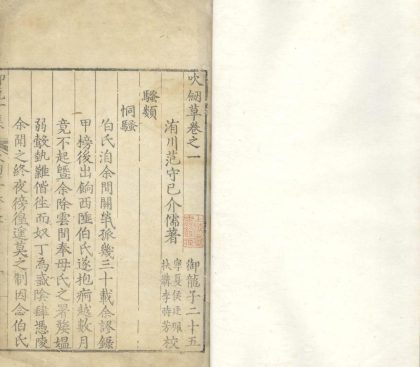 吹劒草卷之一
御龍子二十五
洧川范守己介儒著
寧夏侯廷珮
扶溝李時芳校
騷類
恫騷
伯氏洎余間關笶孤幾三十載余謬錄
甲榜後出餉西陲伯氏遂抱痾越數月
竟不起盬余除雲間奉母氏之署㷟媼
弱㜽孰難偕往而奴丁為蜮陰肆憑陵
余聞之終夜徬徨遑莫之制因念伯氏